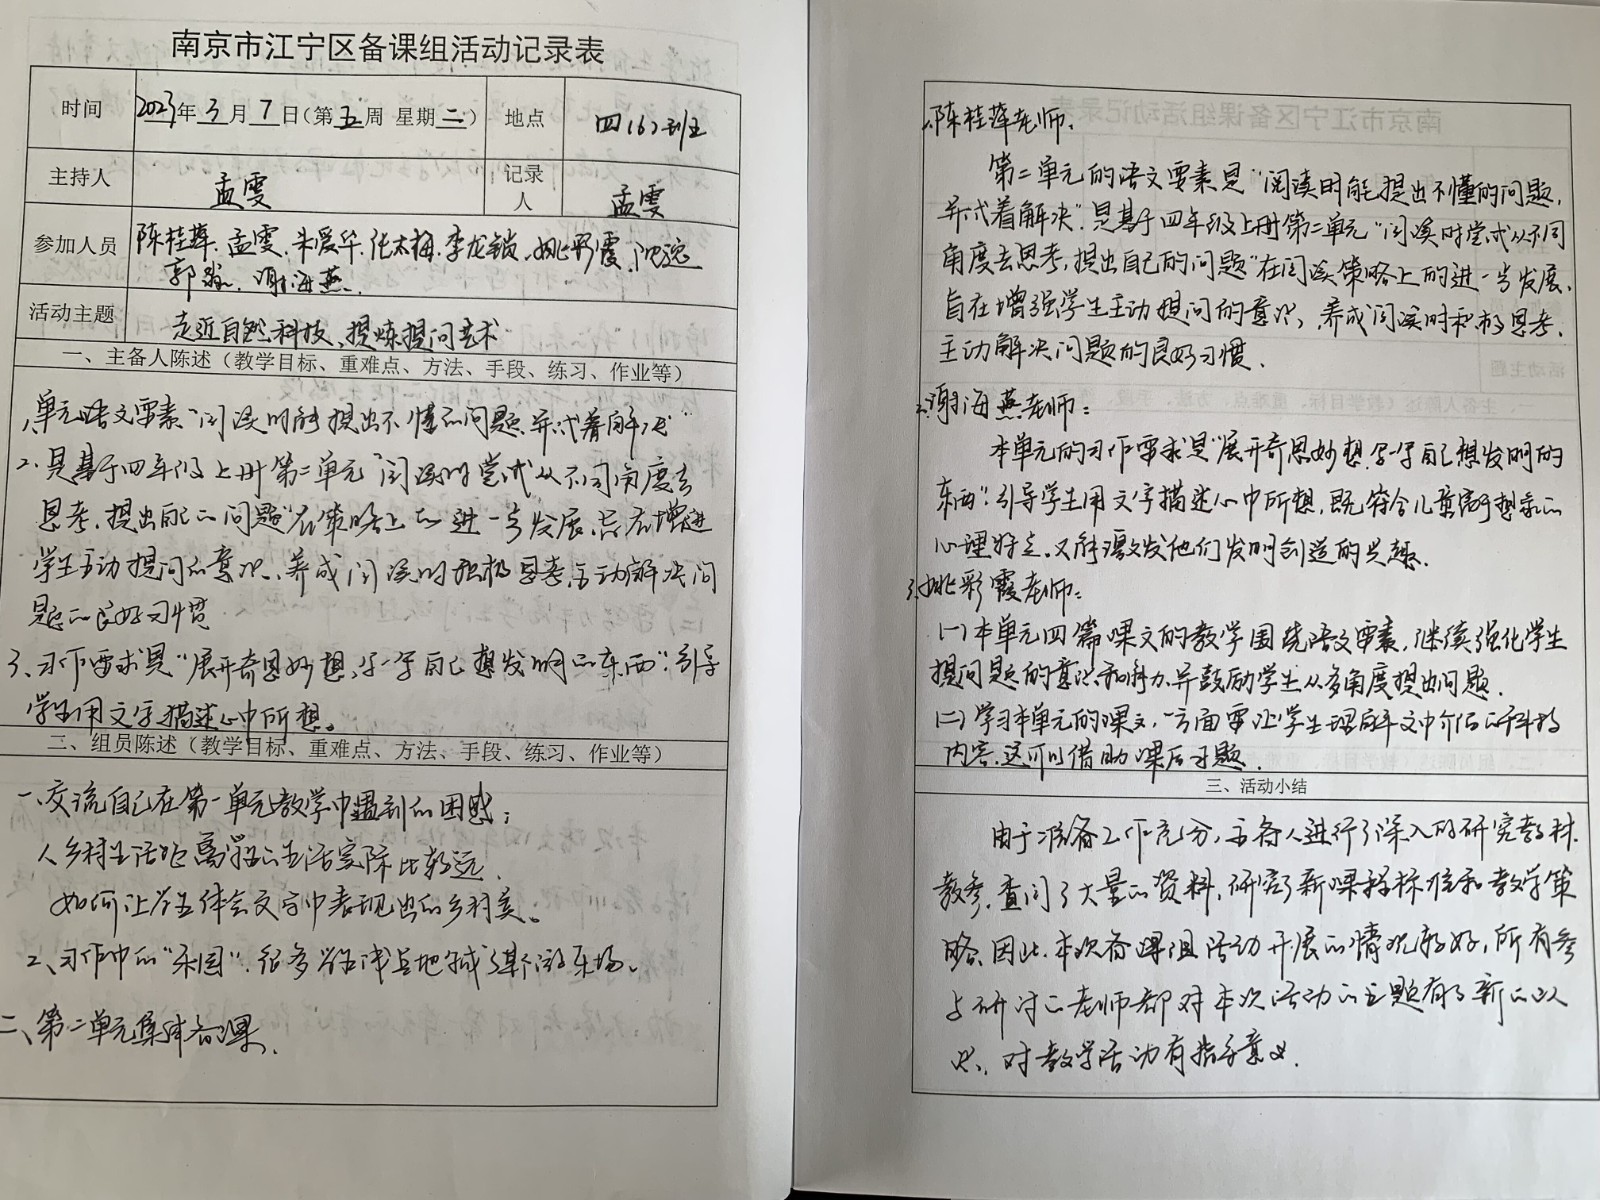 南京市江宁区备课组活动记录表
时间 2023年3月7日(第五周 星期二) 地点 四(6)班
主持人 孟雯 记录人 孟雯
参加人员 陈桂萍、孟雯、朱爱华、张太梅、李龙锁、姚彩霞、沈
郭、谢海燕
活动主题 走近自然科技、提炼提问艺术
一、主备人陈述(教学目标、重难点、方法、手段、练习、作业等)
1、单元语文要素“阅读时能提出不懂的问题、并试着解决”
2、是基于四年级上册第二单元“阅读时尝试从不同角度去
思考,提出自己的问题”在策略上的进一步发展,旨在增进
学生主动提问的意识、养成阅读时积极思考、主动解决问
题的良好习惯
3、习作要求是“展开奇思妙想,写一写自己想发明的东西”:引导
学生用文字描述心中所想。
二、组员陈述(教学目标、重难点、方法、手段、练习、作业等)
一、交流自己在第一单元教学中遇到的困惑:
1、乡村生活距离学生的生活实际比较远,
如何让学生体会文字中表现出的乡村美。
2、习作中的“乐园”,很多学生游乐场。
二、第二单元集体备课、
1、陈桂萍老师:
第二单元的语文要素是“阅读时能提出不懂的问题,
并试着解决”,是基于四年级上册第二单元“阅读时尝试从不同
角度去思考,提出自己的问题”在阅读策略上的进一步发展,
旨在增强学生主动提问的意识,养成阅读时积极思考,
主动解决问题的良好习惯.
2、谢海燕老师:
本单元的习作要求是“展开奇思妙想,写一写自己想发明的
东西”:引导学生用文字描述心中所想,既符合儿童富于想象的
心理特点,又能激发他们发明创造的兴趣.
3、姚彩霞老师:
(一)本单元四篇课文的教学围绕语文要素,继续强化学生
提问题的意识和能力,并鼓励学生从多角度提出问题.
(二)学习本单元的课文,一方面要让学生理解文中介绍的科技
内容,这可以借助课后习题.
三、活动小结
由于准备工作充分,主备人进行了深入的研究教材、
教参,查阅了大量的资料,研究了新课程标准和教学策
略,因此,本次备课组活动开展的情况较好,所有参
与研讨的老师都对本次活动的主题有了新的认
识,对教学活动有指导意义.